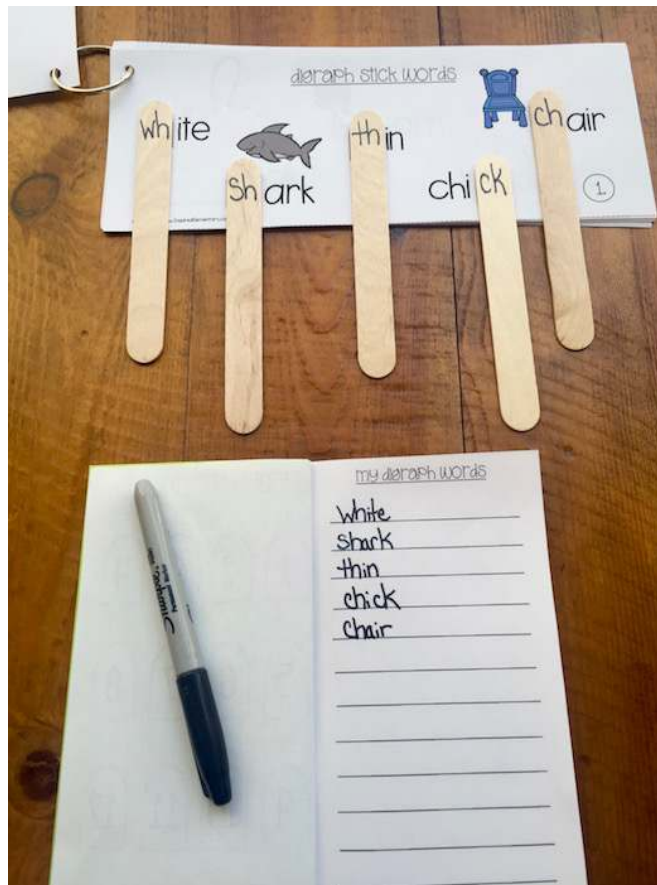 digraph stick words
white
shark
thin
chick
chair
1
my digraph words
white
shark
thin
chick
chair
Sharpie